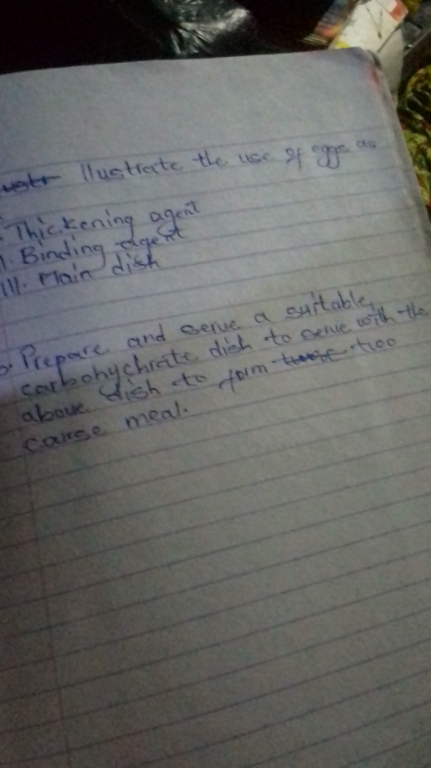 Illustrate the use of eggs as
Thickening agent
I. Binding agent
III. Main dish
Prepare and serve a suitable
carbohychrate dish to serve with the
above dish to form two
carse meal.